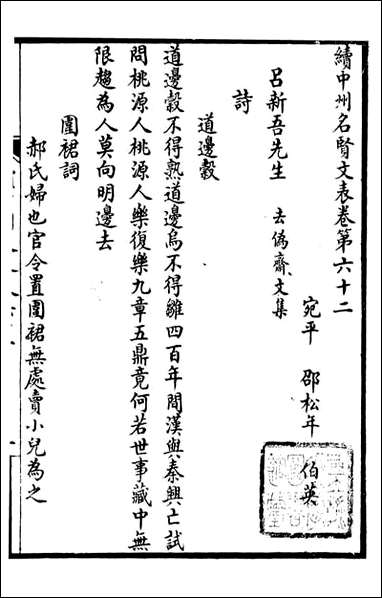 續中州名賢文表卷第六十二
宛平　邵松年　伯英
呂新吾先生　去偽齋文集
詩
道邊穀
道邊穀不得熟道邊烏不得雛四百年間漢與秦興亡試
問桃源人桃源人樂復樂九章五鼎竟何若世事藏中無
限趨為人莫向明邊去
圍裙詞
郝氏婦也官令置圍裙無處賣小兒為之